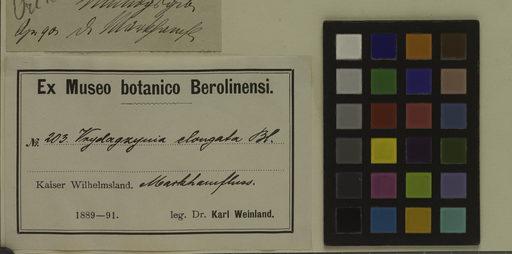 Ex Museo botanico Berolinensi.
No. 203. Vrydagzynia elongata Bl.
Kaiser Wilhelmsland. Markhamfluss.
1889—91. leg. Dr. Karl Weinland.